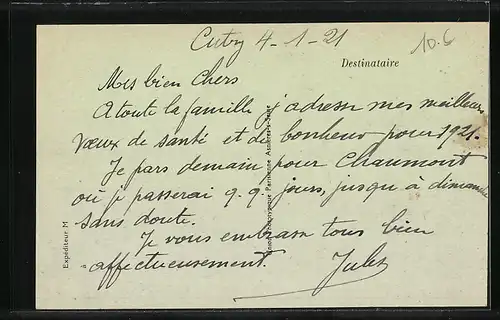 Cutry 4-1-21
10.6
Destinataire
Mes bien Chers
A toute la famille j'adresse mes meilleurs
Vœux de santé et de bonheur pour 1921.
Je pars demain pour Chaumont
ou je passerai q.q. jours, jusqu'à dimanche
sans doute.
Je vous embrasse tous bien
affectueusement.
Jules
Expéditeur M
Parisienne Asnières-s-Seine